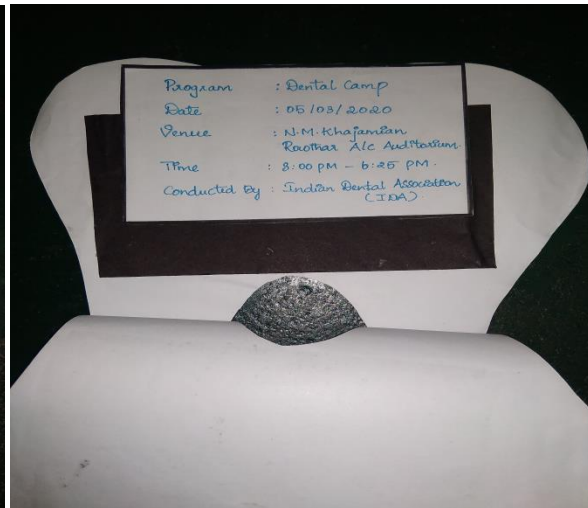 Program : Dental Camp
Date : 05/03/2020
Venue : N.M. Khajamian
Rowthar A/c Auditorium.
Time : 3:00 PM - 6:25 PM.
Conducted by : Indian Dental Association
(IDA)